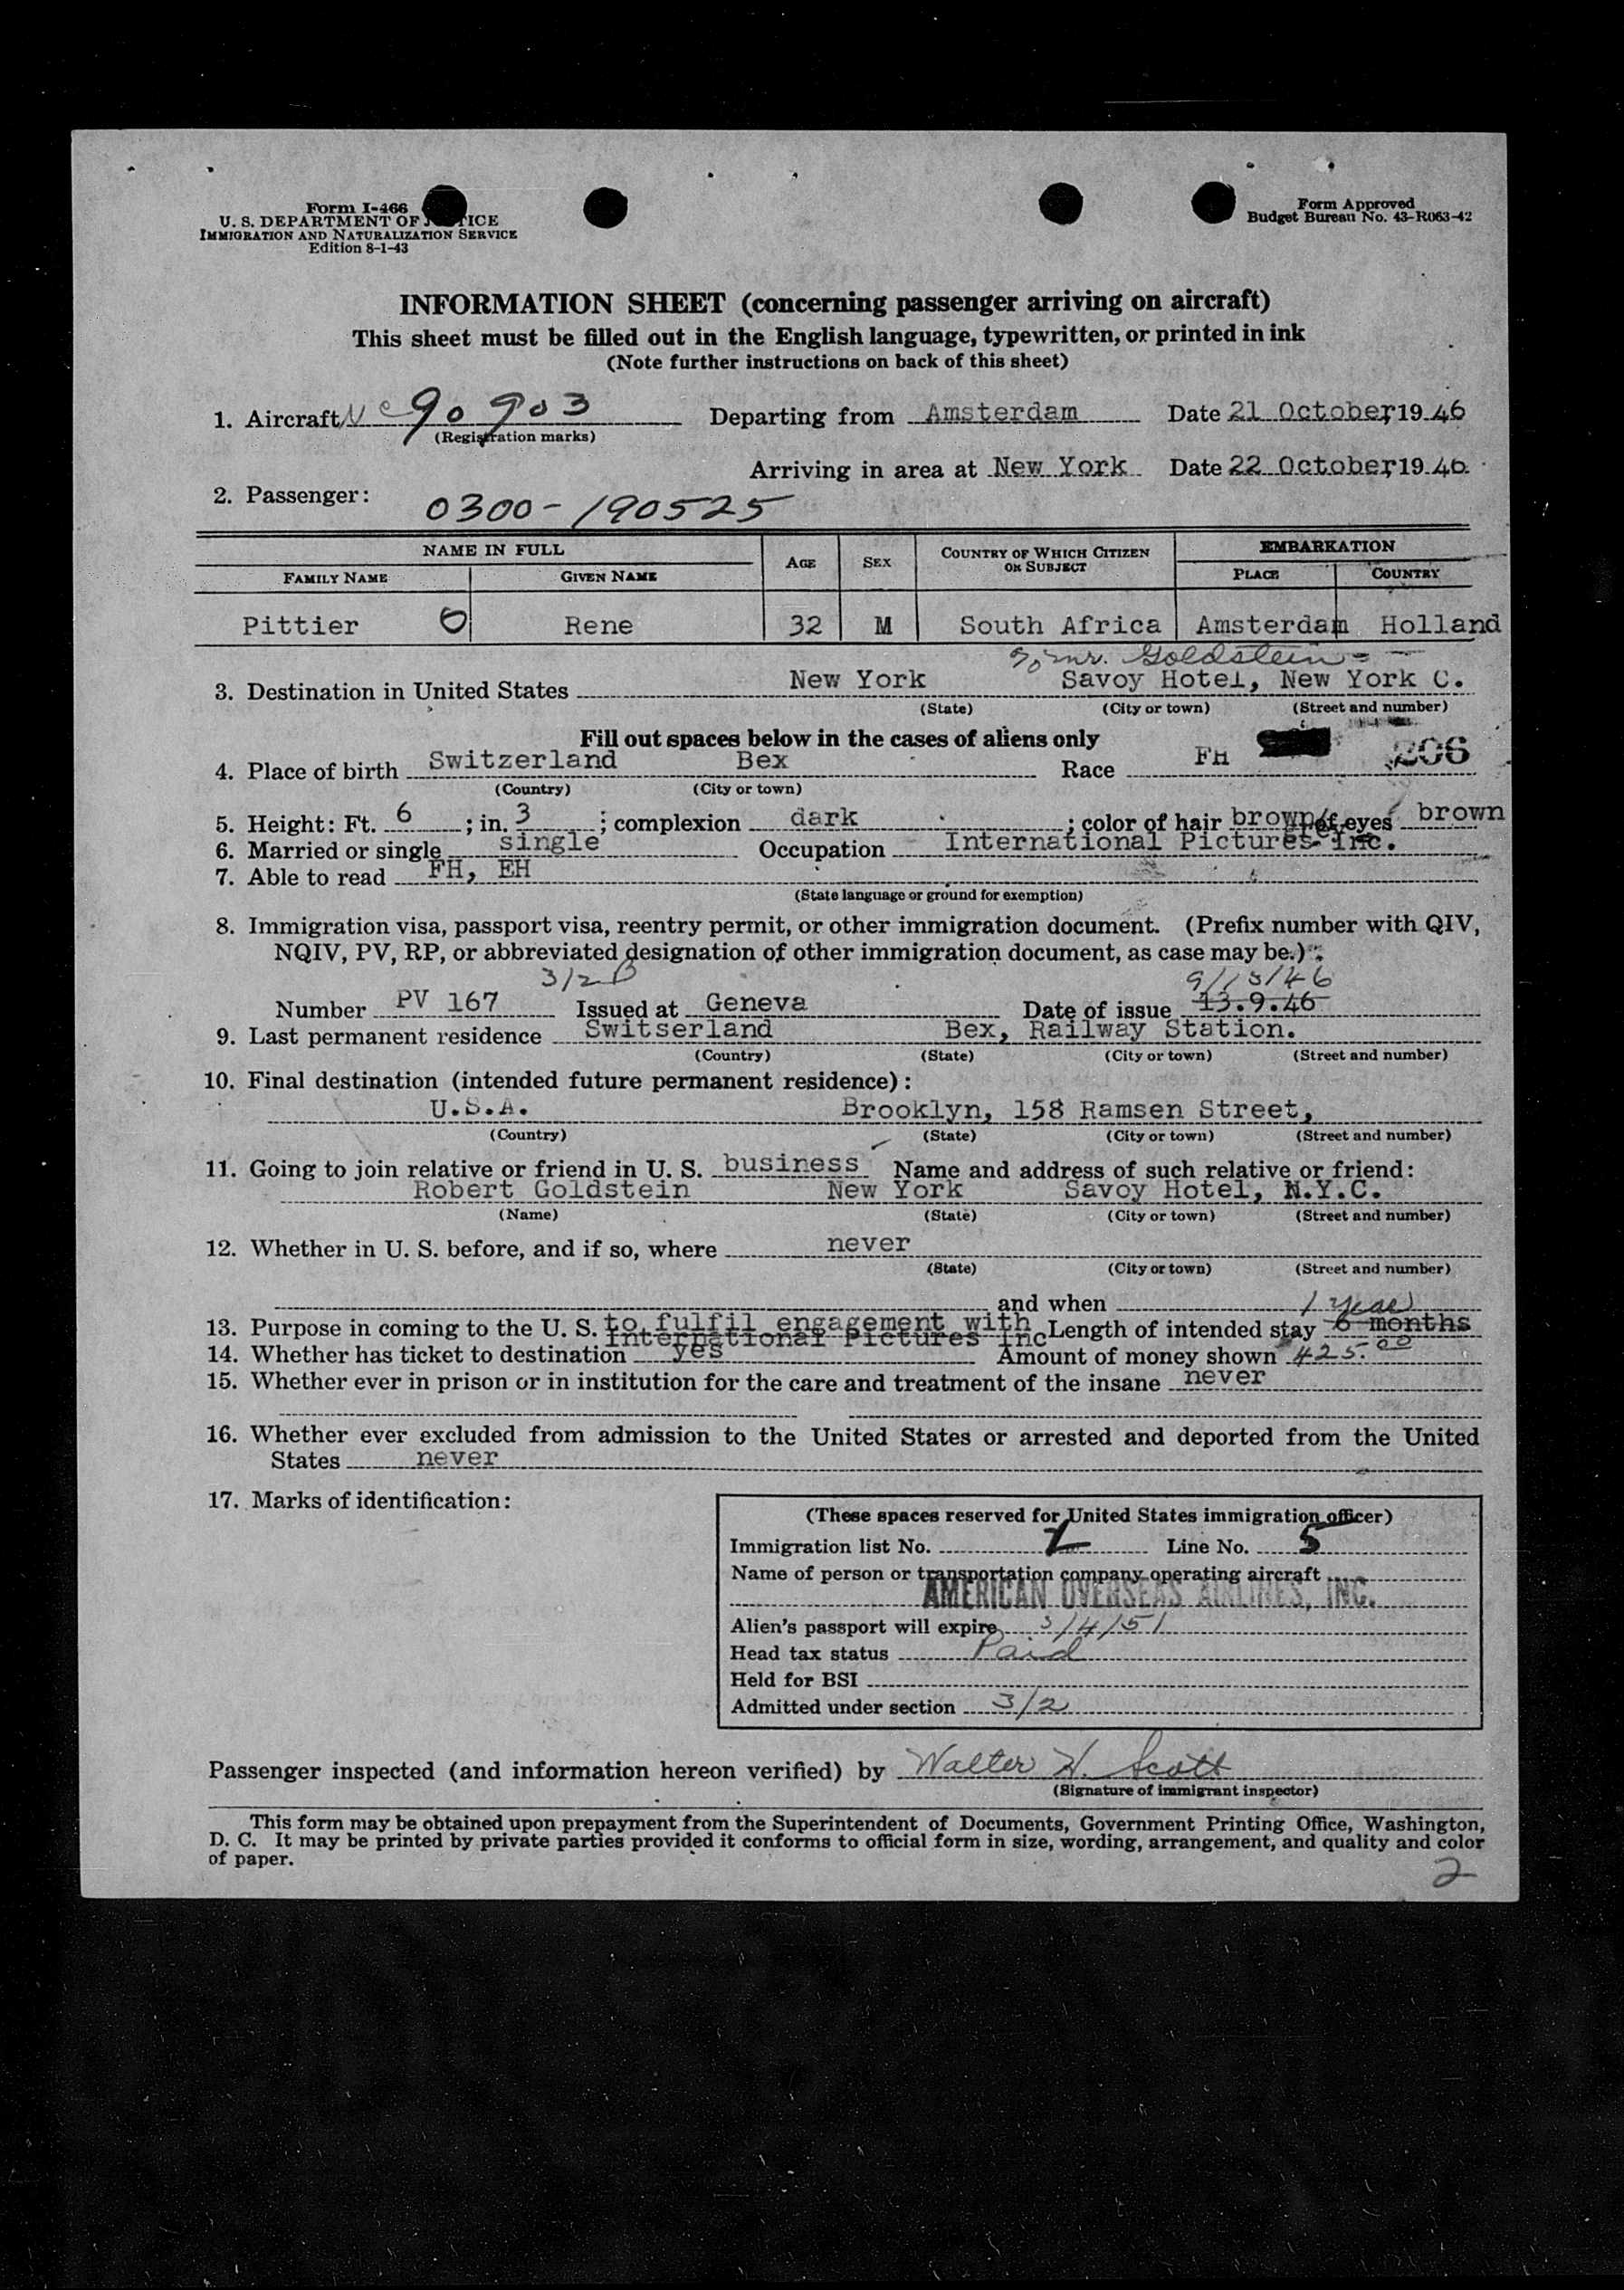 Form I-466
U. S. DEPARTMENT OF JUSTICE
IMMIGRATION AND NATURALIZATION SERVICE
Edition 8-1-43
Form Approved
Budget Bureau No. 43-R063-42
INFORMATION SHEET (concerning passenger arriving on aircraft)
This sheet must be filled out in the English language, typewritten, or printed in ink
(Note further instructions on back of this sheet)
1. Aircraft Nc 90903 Departing from Amsterdam Date 21 October, 1946
(Registration marks)
Arriving in area at New York Date 22 October, 1946
2. Passenger: 0300-190525
NAME IN FULL AGE SEX COUNTRY OF WHICH CITIZEN OR SUBJECT EMBARKATION
FAMILY NAME GIVEN NAME PLACE COUNTRY
Pittier Rene 32 M South Africa Amsterdam Holland
Mr. Goldstein
3. Destination in United States New York Savoy Hotel, New York C.
(State) (City or town) (Street and number)
Fill out spaces below in the cases of aliens only
4. Place of birth Switzerland Bex Race FH 206
(Country) (City or town)
5. Height: Ft. 6 ; in. 3 ; complexion dark ; color of hair brown of eyes brown
6. Married or single single Occupation International Pictures Inc.
7. Able to read FH, EH
(State language or ground for exemption)
8. Immigration visa, passport visa, reentry permit, or other immigration document. (Prefix number with QIV,
NQIV, PV, RP, or abbreviated designation of other immigration document, as case may be.)
3/2 9/13/46
Number PV 167 Issued at Geneva Date of issue 13.9.46
9. Last permanent residence Switserland Bex, Railway Station.
(Country) (State) (City or town) (Street and number)
10. Final destination (intended future permanent residence):
U.S.A. Brooklyn, 158 Ramsen Street,
(Country) (State) (City or town) (Street and number)
11. Going to join relative or friend in U. S. business Name and address of such relative or friend:
Robert Goldstein New York Savoy Hotel, N.Y.C.
(Name) (State) (City or town) (Street and number)
12. Whether in U. S. before, and if so, where never
(State) (City or town) (Street and number)
and when 1 year
13. Purpose in coming to the U. S. to fulfil engagement with International Pictures Inc Length of intended stay 6 months
14. Whether has ticket to destination yes Amount of money shown 425.00
15. Whether ever in prison or in institution for the care and treatment of the insane never
16. Whether ever excluded from admission to the United States or arrested and deported from the United
States never
17. Marks of identification:
(These spaces reserved for United States immigration officer)
Immigration list No. 2 Line No. 5
Name of person or transportation company operating aircraft
AMERICAN OVERSEAS AIRLINES, INC.
Alien's passport will expire 3/4/51
Head tax status Paid
Held for BSI
Admitted under section 3/2
Passenger inspected (and information hereon verified) by Walter H. Scott
(Signature of immigrant inspector)
This form may be obtained upon prepayment from the Superintendent of Documents, Government Printing Office, Washington,
D. C. It may be printed by private parties provided it conforms to official form in size, wording, arrangement, and quality and color
of paper.
2